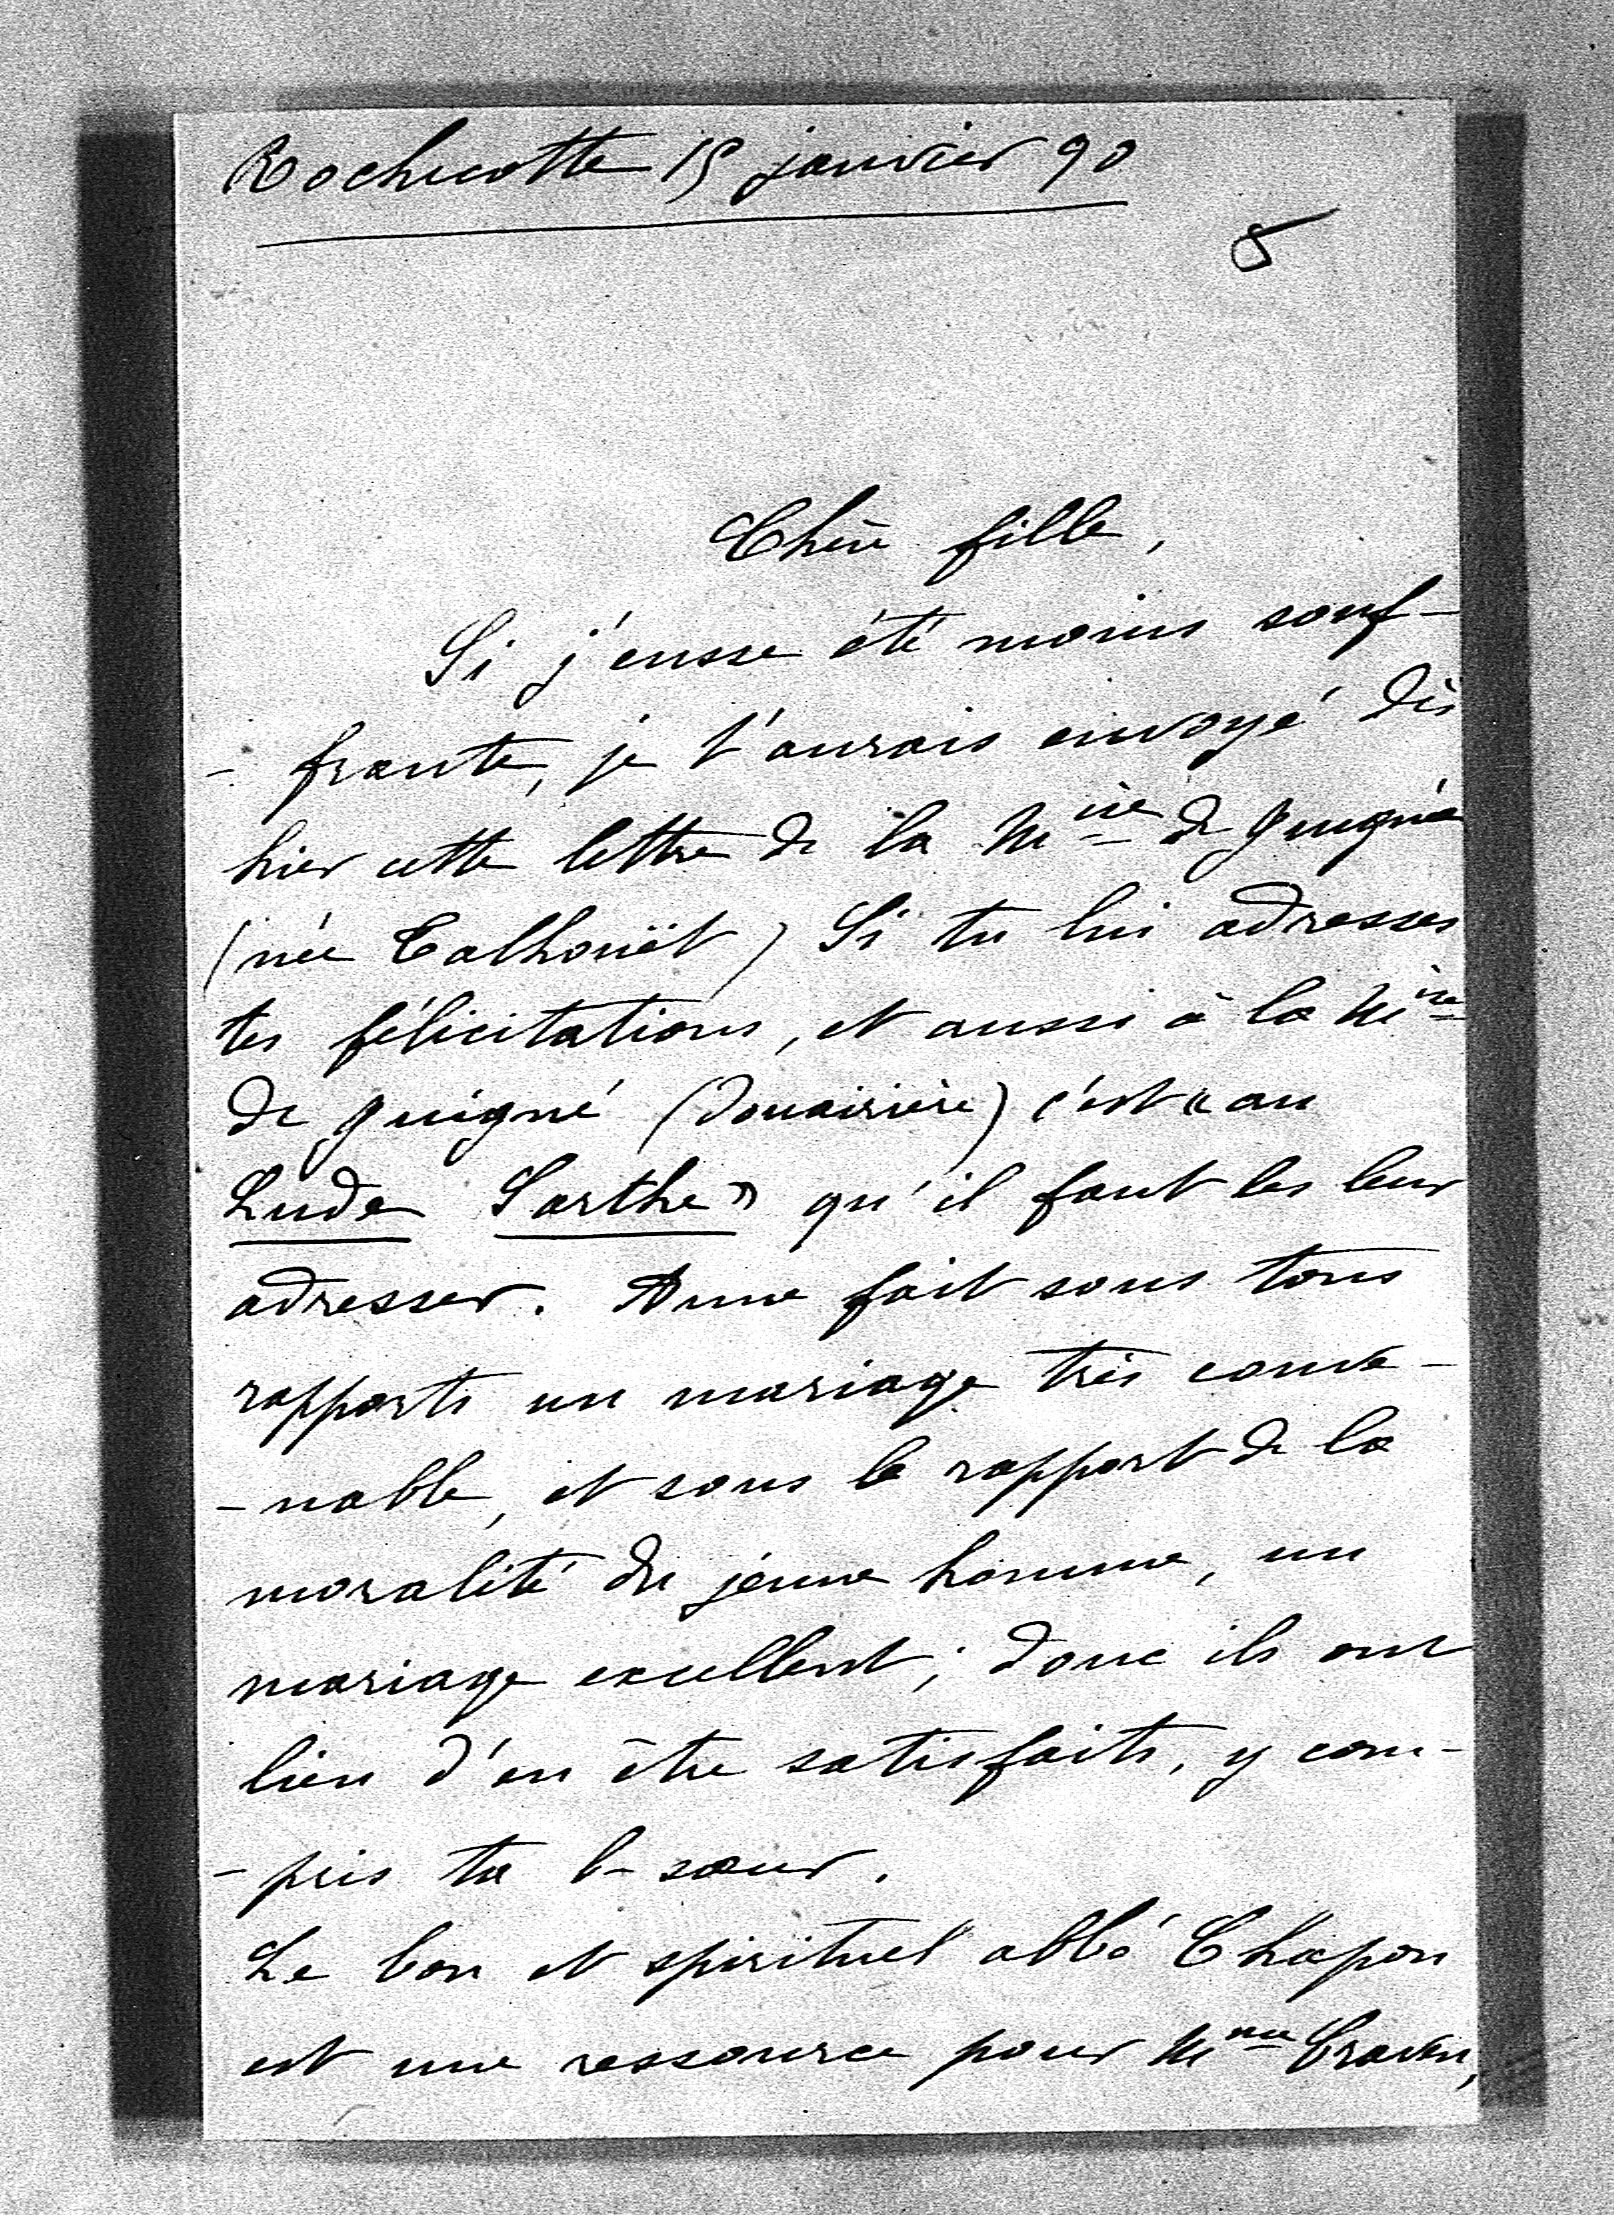 Rochecotte 15 janvier 90
5
Chère fille,
Si j'eusse été moins souf-
-frante, je t'aurais envoyé dès
hier cette lettre de la Mise de Juigné
(née Talhouët) Si tu lui adresses
tes félicitations, et aussi à la Mise
de Juigné (Douairière) c'est « au
Lude Sarthe » qu'il faut les leur
adresser. Anne fait sous tous
rapports un mariage très conve-
-nable, et sous le rapport de la
moralité du jeune homme, un
mariage excellent; donc ils ont
lieu d'en être satisfaits, y com-
-pris ta b-sœur.
Le bon et spirituel abbé Chapon
est une ressource pour Mme Craven,